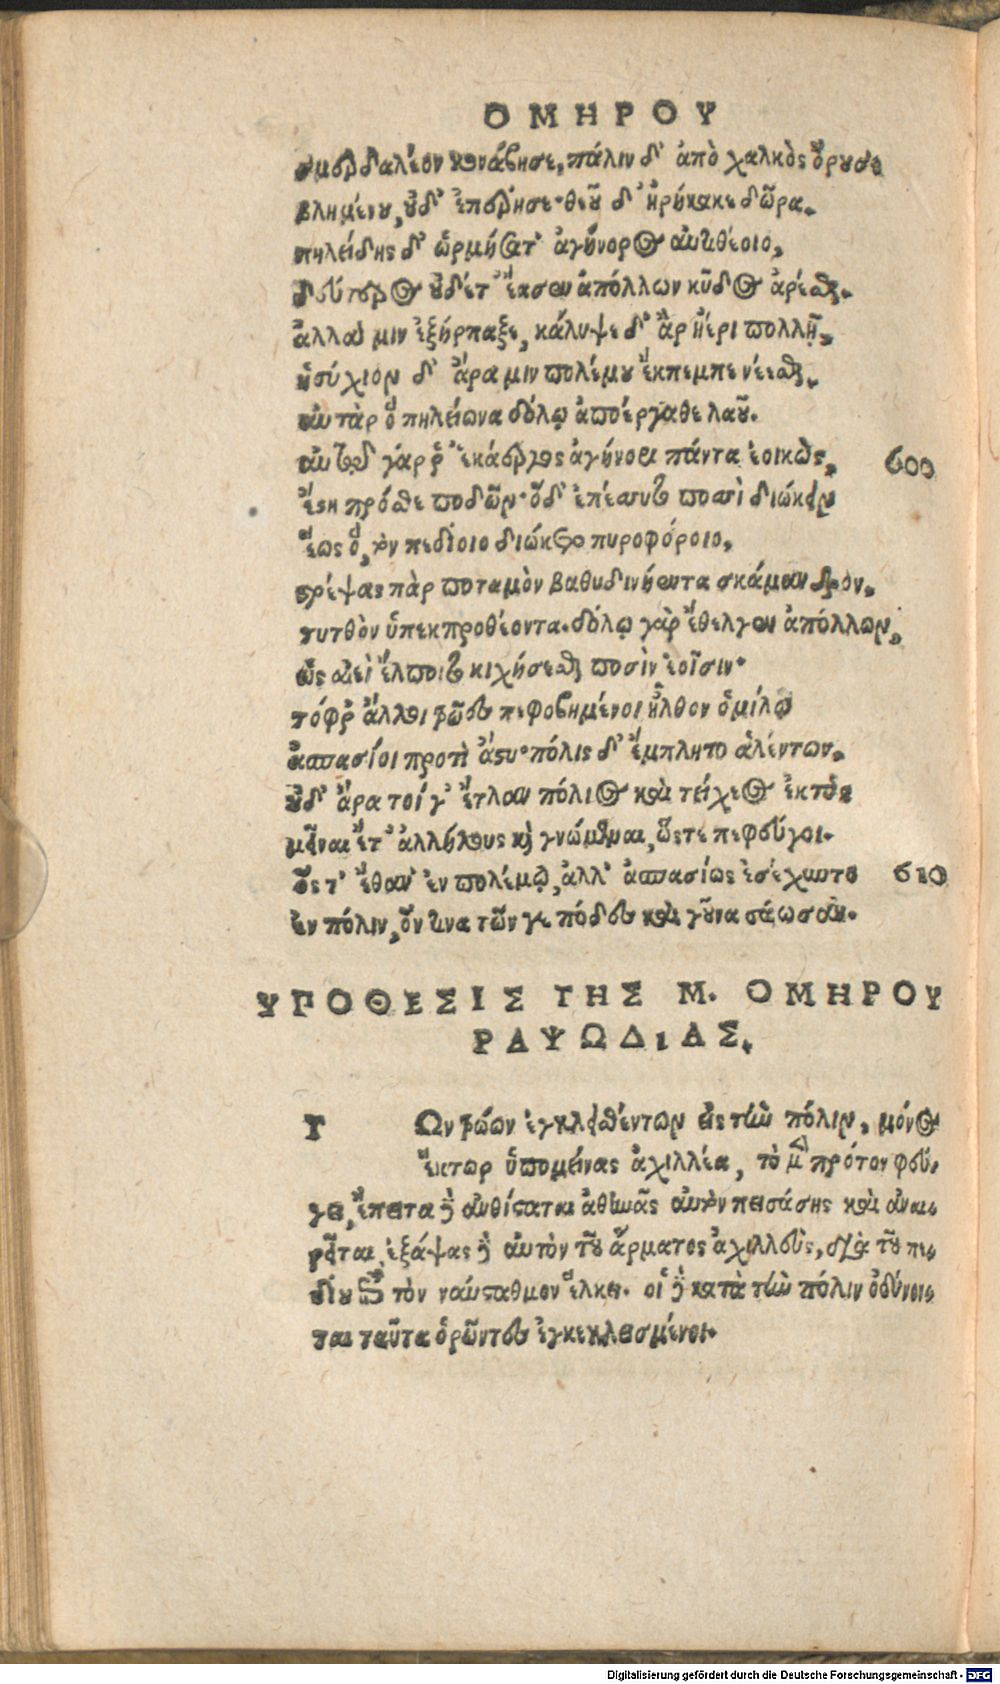 ΟΜΗΡΟΥ
σμερδαλέον κονάβησε, πάλιν δ' ἀπὸ χαλκὸς ὄρουσε
βλημένου, οὐδ' ἐπέρησε· θεοῦ δ' ἠρύκακε δῶρα.
πηλείδης δ' ὡρμήσατ' ἀγήνορος ἀντιθέοιο,
δεύτερος οὐδέ τ' ἔασεν ἀπόλλων κῦδος ἀρέσθαι.
ἀλλά μιν ἐξήρπαξε, κάλυψε δ' ἂρ ἠέρι πολλῇ,
ἡσύχιον δ' ἄρα μιν πολέμου ἔκπεμπε νέεσθαι.
αὐτὰρ ὃ πηλείωνα δόλῳ ἀποέργαθε λαοῦ.
αὐτῷ γάρ ῥ' ἑκάεργος ἀγήνορι πάντα ἐοικὼς, 600
ἔστη πρόσθε ποδῶν· ὃδ' ἐπέσσυτο ποσσὶ διώκειν
ἕως ὃ, τὸν πεδίοιο διώκετο πυροφόροιο,
τρέψας πὰρ ποταμὸν βαθυδινήεντα σκάμανδρον,
τυτθὸν ὑπεκπροθέοντα. δόλῳ γὰρ ἔθελγεν ἀπόλλων,
ὡς αἰεὶ ἔλποιτο κιχήσεσθαι ποσὶν ἑοῖσιν·
τόφρ' ἄλλοι τρῶες πεφοβημένοι ἦλθον ὁμίλῳ
ἀσπασίοι προτὶ ἄστυ· πόλις δ' ἔμπλητο ἀλέντων.
οὐδ' ἄρα τοί γ' ἔτλαν πόλιος καὶ τείχεος ἐκτὸς
μεῖναι ἔτ' ἀλλήλους καὶ γνώμεναι, ὥστε πεφεύγοι.
ὅς τ' ἔθαν' ἐν πολέμῳ, ἀλλ' ἀσπασίως ἐσέχυντο 610
ἐν πόλιν, ὅν τινα τῶν γε πόδες καὶ γοῦνα σάωσαν.
ΥΠΟΘΕΣΙΣ ΤΗΣ Μ. ΟΜΗΡΟΥ
ΡΑΨΩΔΙΑΣ.
ΤΩν τρώων ἐγκλεισθέντων εἰς τὴν πόλιν, μόνος
ἕκτωρ ὑπομείνας ἀχιλλέα, τὸ μὲν πρότον φεύ-
γει, ἔπειτα δὲ ἀνθίσταται ἀθηνᾶς αὐτὸν πεισάσης καὶ ἀναι-
ρεῖται, ἐξάψας δὲ αὐτὸν τοῦ ἅρματος ἀχιλλεὺς, διὰ τοῦ πε-
δίου ἐπὶ τὸν ναύσταθμον ἕλκει. οἱ δὲ κατὰ τὴν πόλιν ὀδύνον-
ται ταῦτα ὁρῶντες ἐγκεκλεισμένοι.
Digitalisierung gefördert durch die Deutsche Forschungsgemeinschaft - DFG